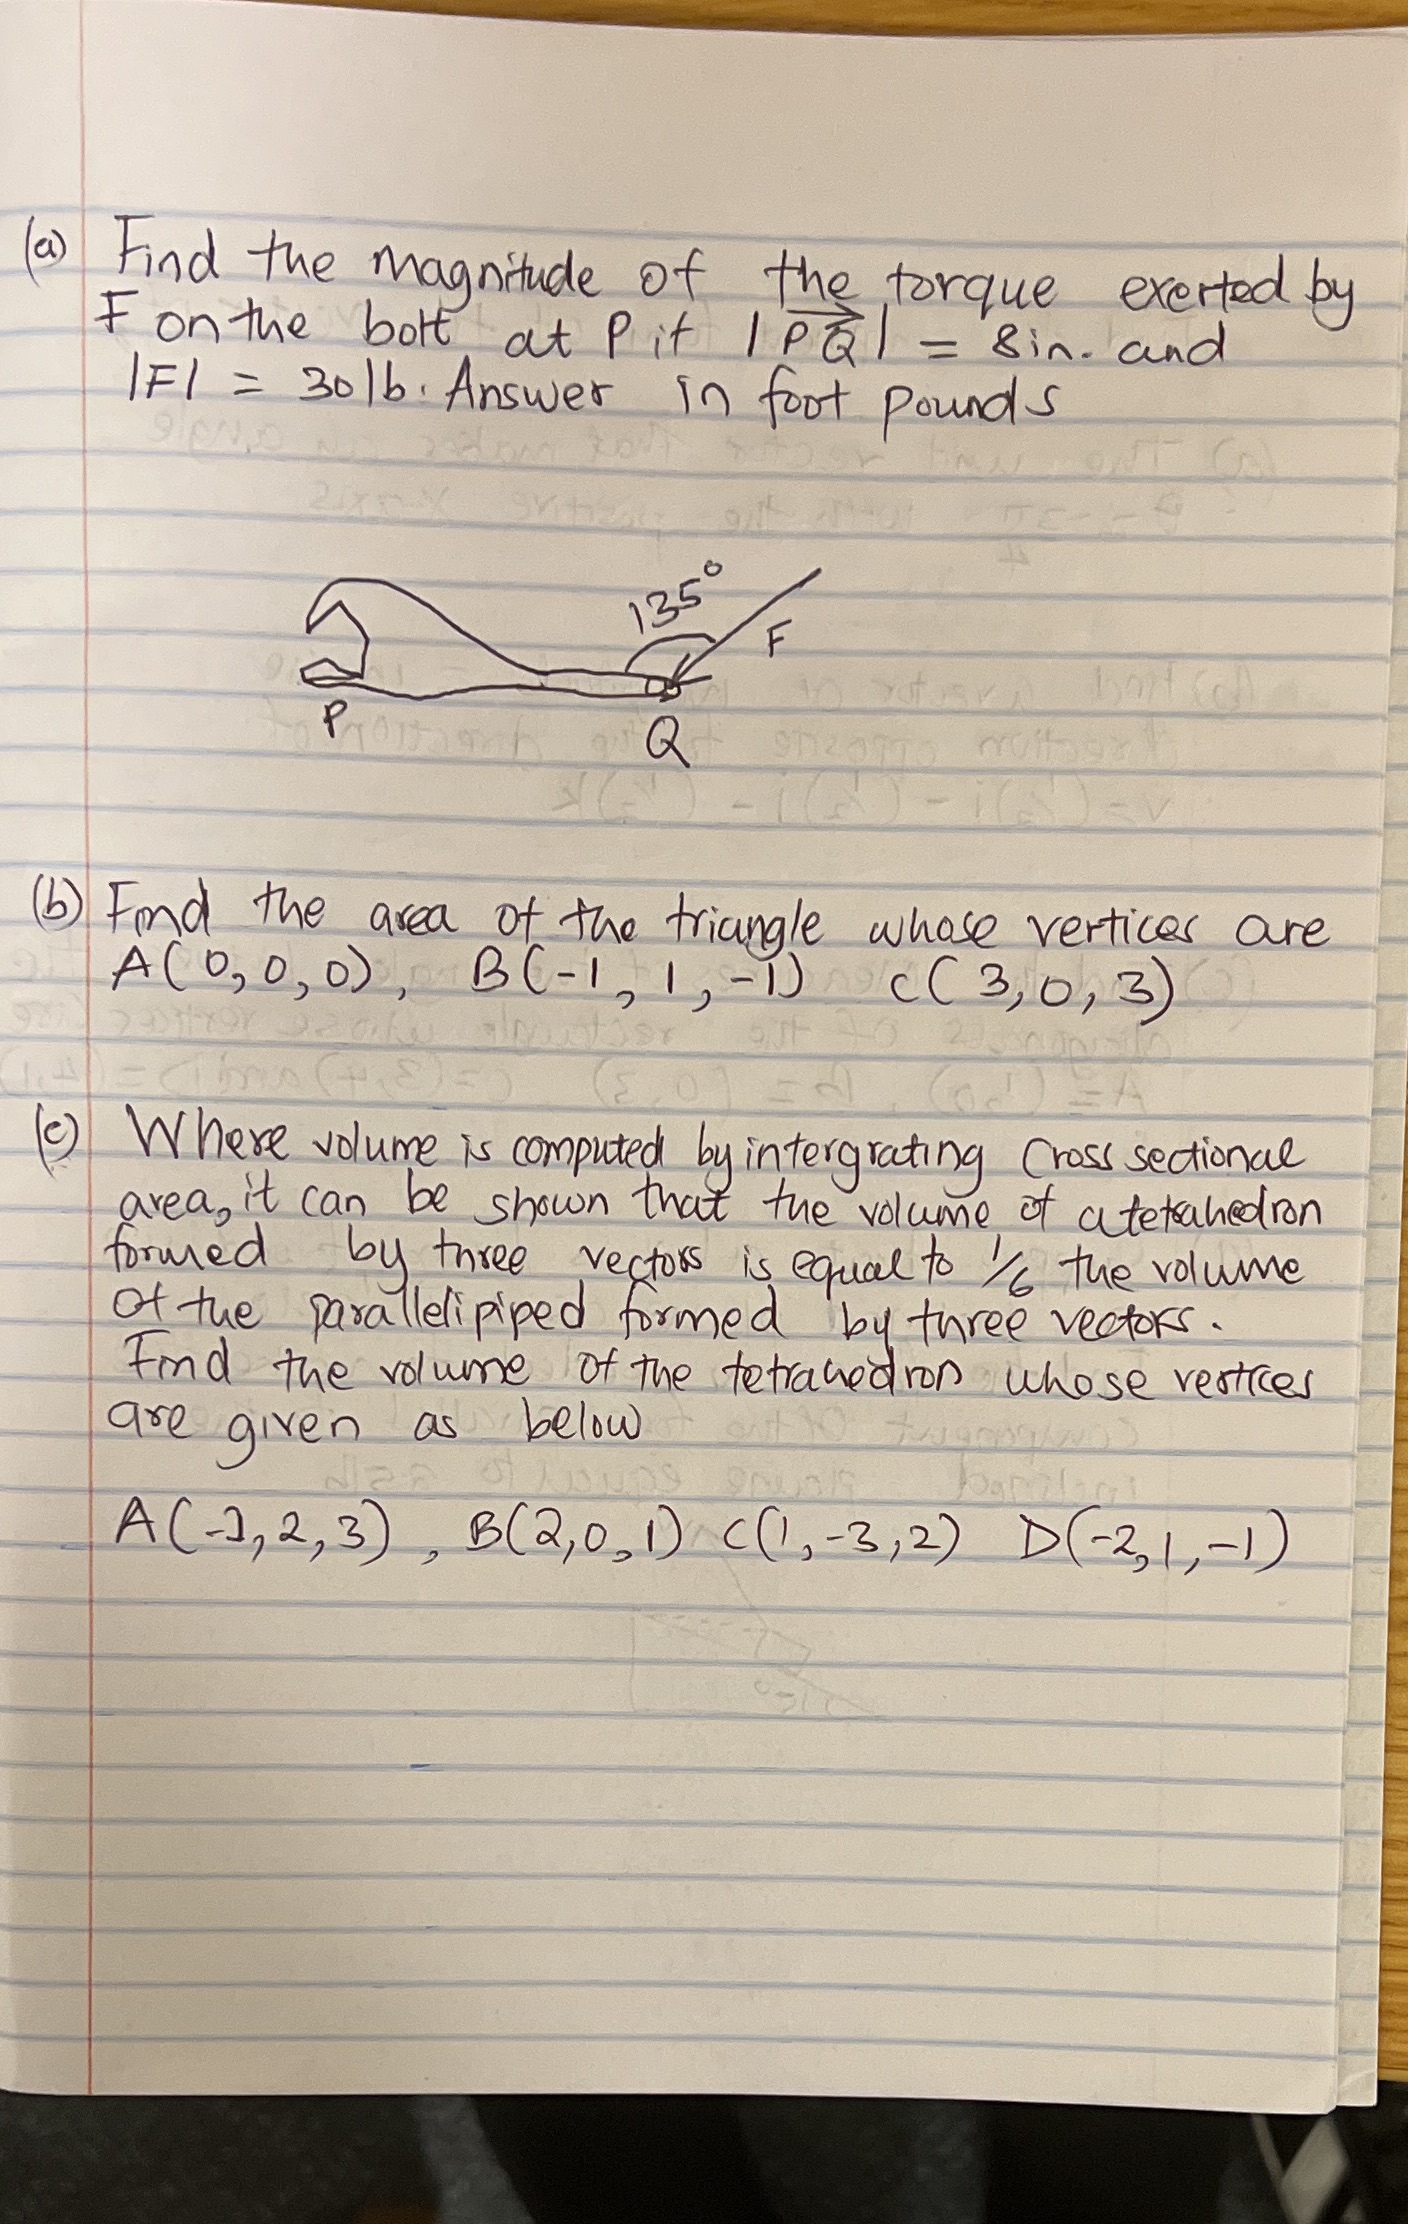 (a) Find the magnitude of the torque exerted by
F on the bolt at P if |PQ| = 8in. and
|F| = 30lb. Answer in foot pounds
135°
F
P
Q
(b) Find the area of the triangle whose vertices are
A(0,0,0), B(-1,1,-1) C(3,0,3)
(c) Where volume is computed by intergrating Cross sectional
area, it can be shown that the volume of a tetrahedron
formed by three vectors is equal to 1/6 the volume
of the parallelipiped formed by three vectors.
Find the volume of the tetrahedron whose vertices
are given as below
A(-1,2,3), B(2,0,1) C(1,-3,2) D(-2,1,-1)